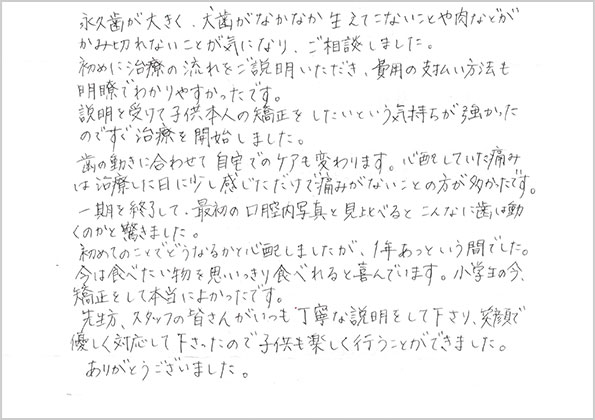 永久歯が大きく、犬歯がなかなか生えてこないことや肉などが
かみ切れないことが気になり、ご相談しました。
初めに治療の流れをご説明いただき、費用の支払い方法も
明瞭でわかりやすかったです。
説明を受けて子供本人の矯正をしたいという気持ちが強かった
のですぐ治療を開始しました。
歯の動きに合わせて自宅でのケアも変わります。心配していた痛み
は治療した日に少し感じただけで痛みがないことの方が多かったです。
一期を終了して、最初の口腔内写真と見比べるとこんなに歯は動
くのかと驚きました。
初めてのことでどうなるかと心配しましたが、1年あっという間でした。
今は食べたい物を思いっきり食べれると喜んでいます。小学生の今、
矯正をして本当によかったです。
先生方、スタッフの皆さんがいつも丁寧な説明をして下さり、笑顔で
優しく対応して下さったので子供も楽しく行うことができました。
ありがとうございました。